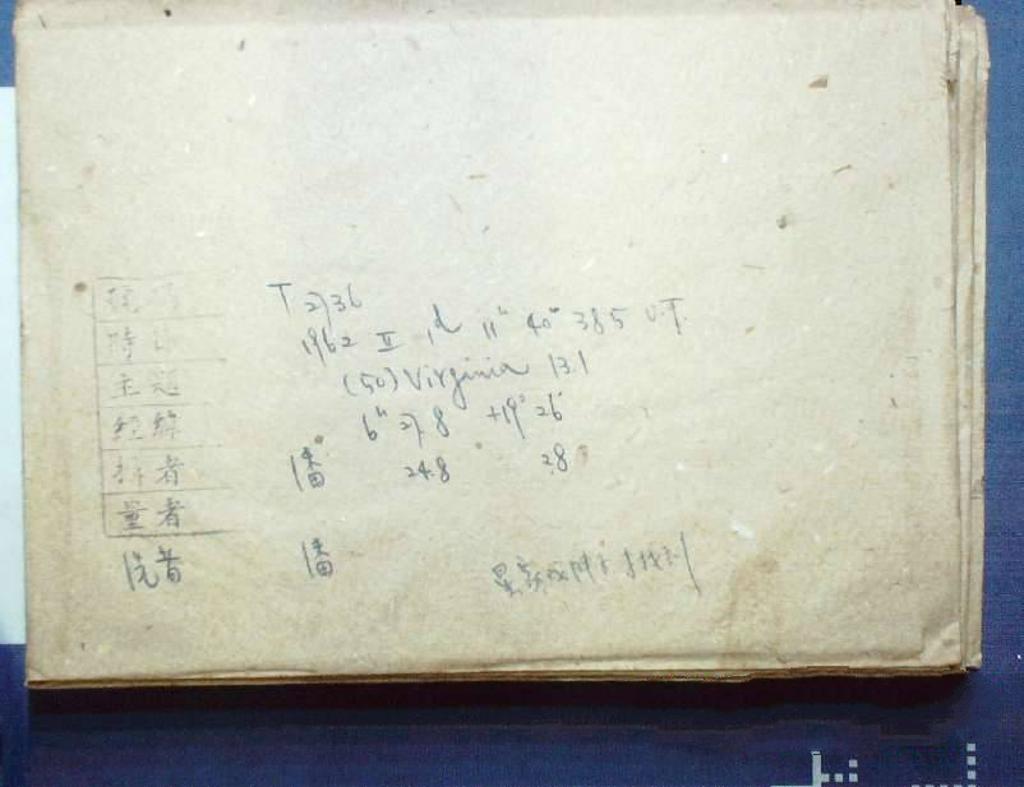 T 2736
時
1962 II 1d 11h 40m 38.5 U.T.
主題
(50) Virginia 13.1
經緯
6h 27.8 +19° 26'
者 潘 24.8 28
量者
潘